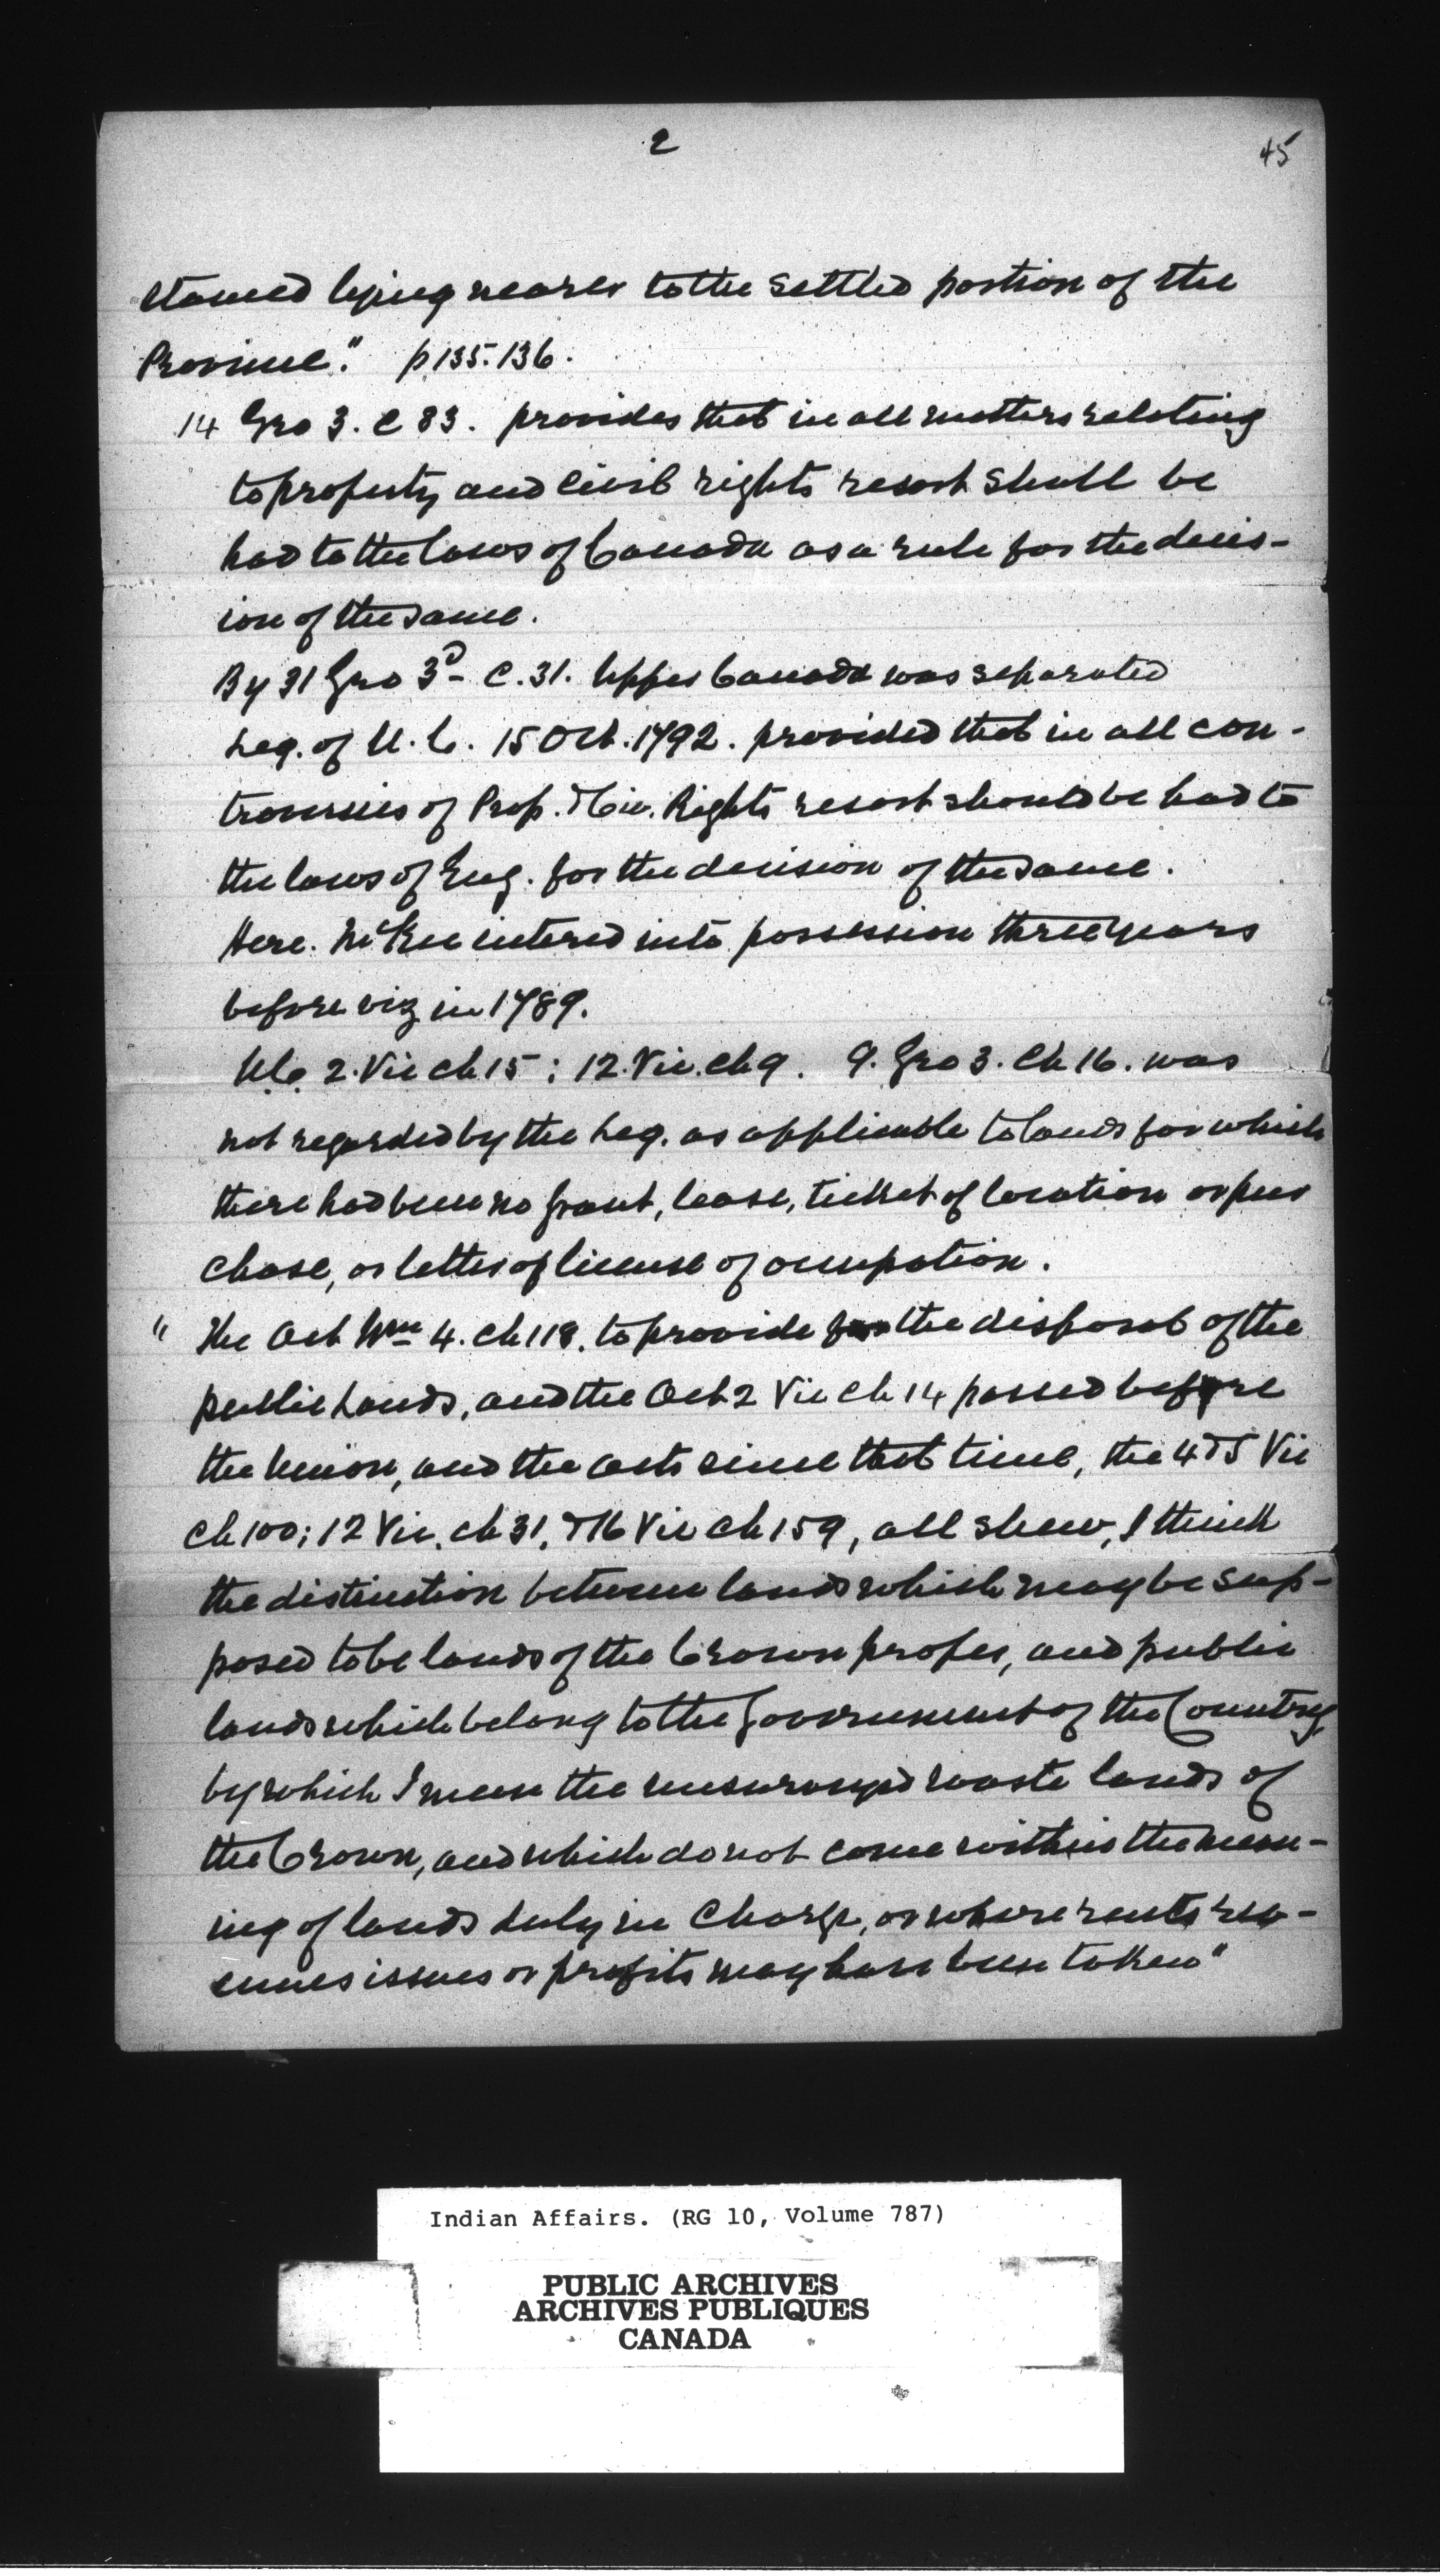 2
45
tained lying nearer to the settled portion of the
Province." p 135.136.
14 Geo 3. c 83. provides that in all matters relating
to property and civil rights resort shall be
had to the laws of Canada as a rule for the decis-
ion of the same.
By 31 Geo 3d c. 31. Upper Canada was separated
Leg. of U.C. 15 Oct. 1792. provided that in all con-
troversies of Prop. & Civ. Rights resort should be had to
the laws of Eng. for the decision of the same.
Here. McKee entered into possession three years
before viz in 1789.
2. Vic ch 15; 12. Vic. ch 9. 9. Geo 3. Ch 16. was
not regarded by the Leg. as applicable to lands for which
there had been no grant, lease, ticket of location or pur
chase, or letter of license of occupation.
" The Act Wm 4. ch 118. to provide for the disposal of the
public lands, and the Act 2 Vic ch 14 passed before
the Union, and the acts since that time, the 4 & 5 Vic
ch 100; 12 Vic. ch 31, & 16 Vic ch 159, all shew, I think
the distinction between lands which may be sup-
posed to be lands of the Crown proper, and public
lands which belong to the Government of the Country,
by which I mean the unsurveyed waste lands of
the Crown, and which do not come within the mean-
ing of lands duly in charge, or where rents rev-
enues issues or profits may have been taken"
Indian Affairs. (RG 10, Volume 787)
PUBLIC ARCHIVES
ARCHIVES PUBLIQUES
CANADA